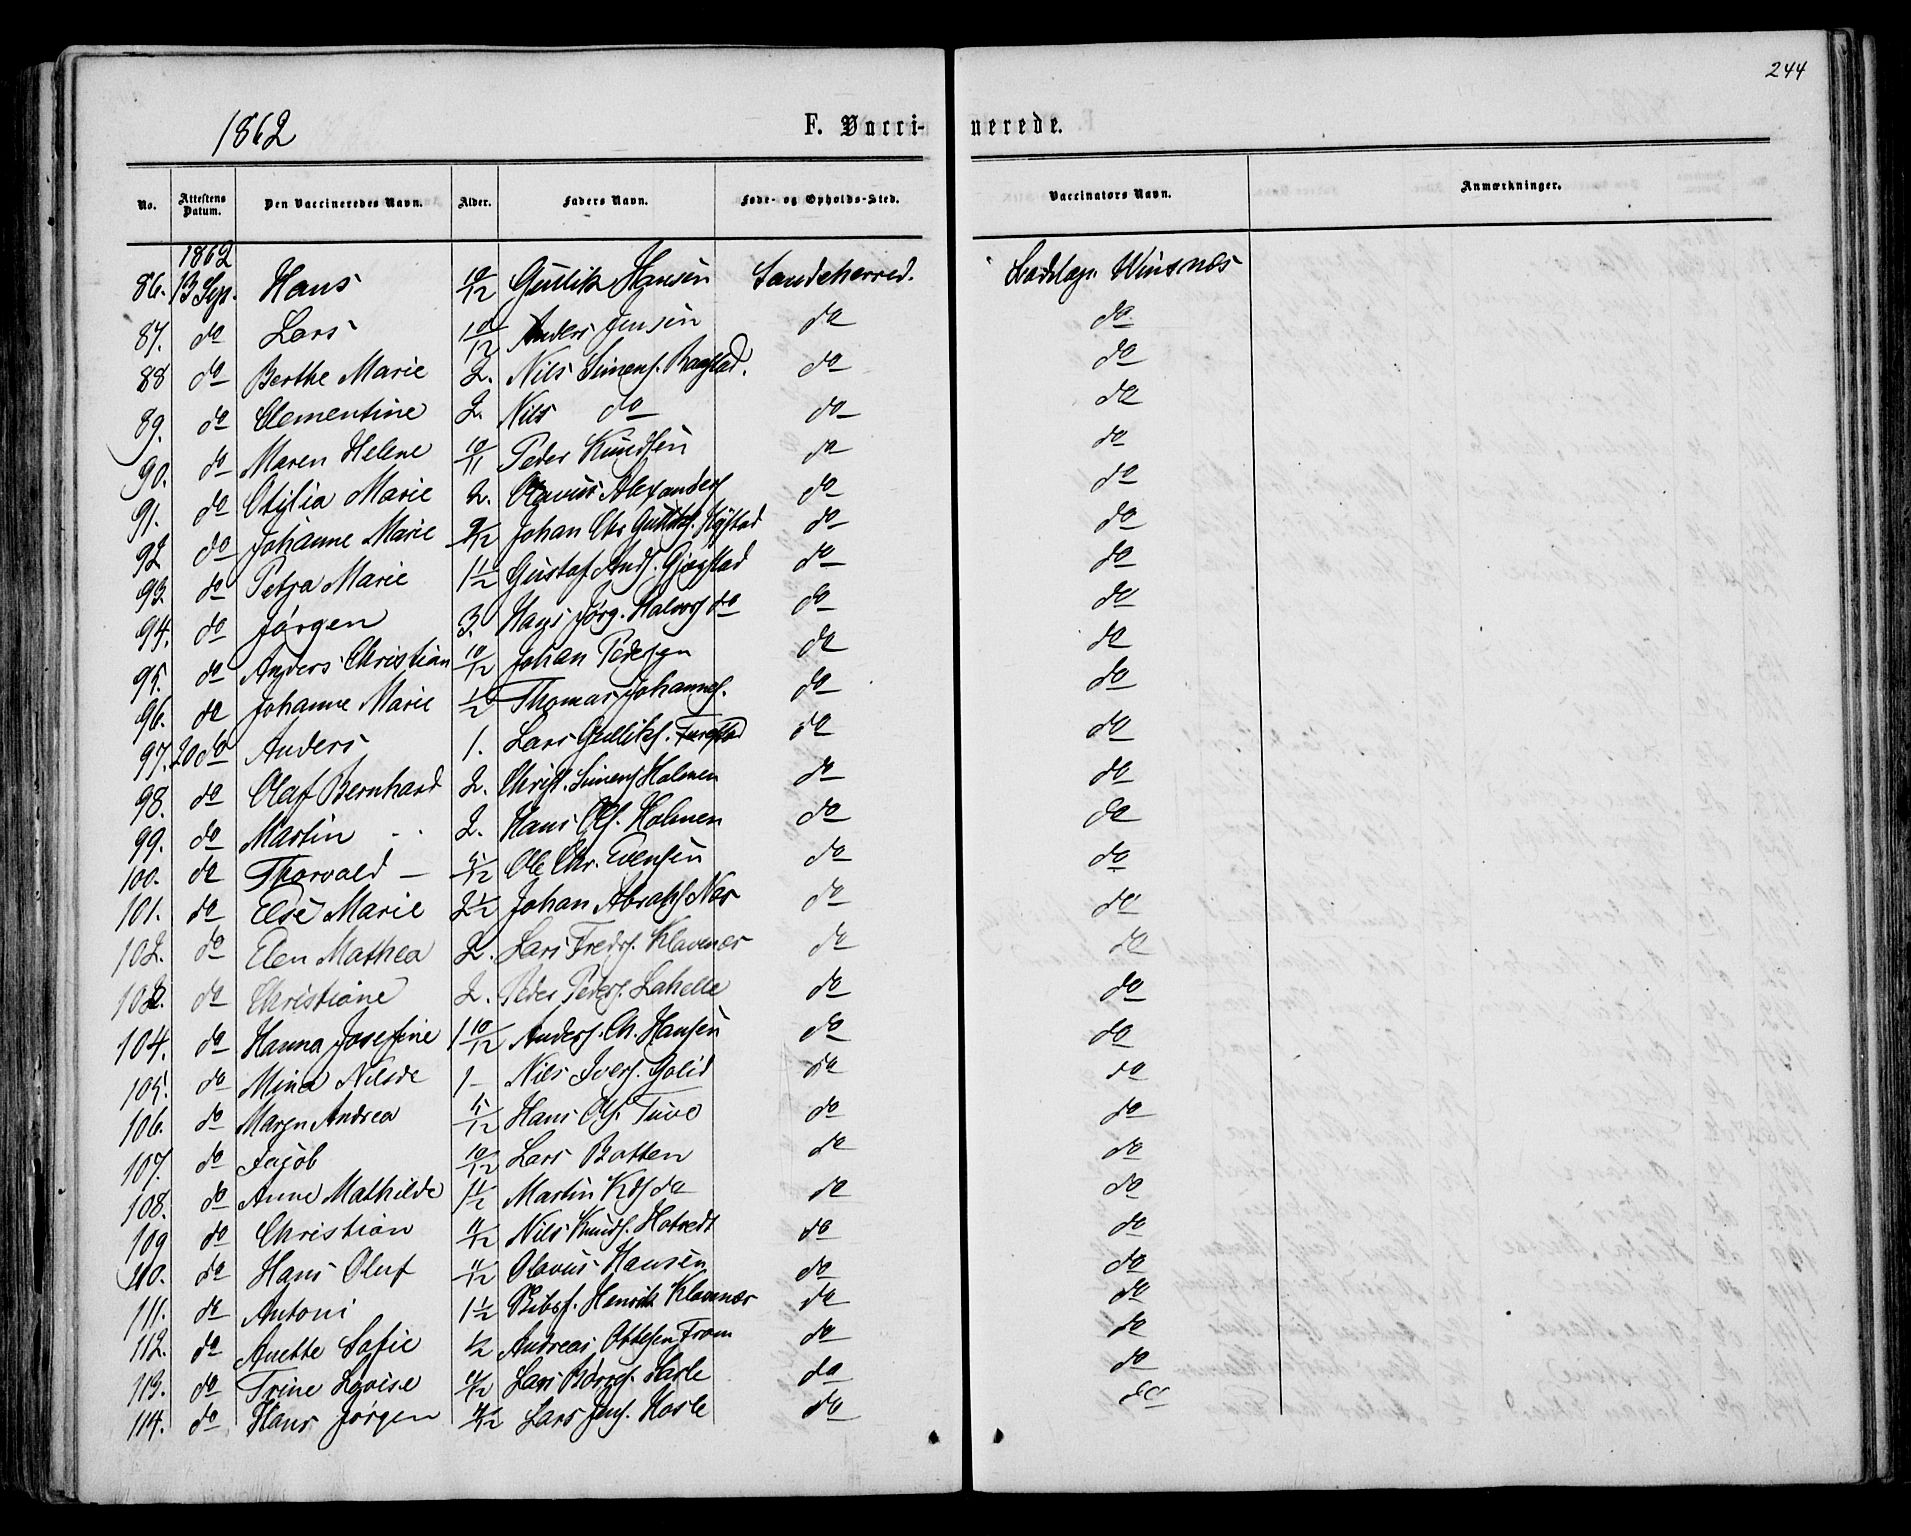 244
1862
F. Vacci- nerede.
No. Attestens Datum. Den Vaccineredes Navn. Alder. Faders Navn. Føde- og Opholds-Sted. Vaccinators Navn. Anmærkninger.
1862
86. 13 Sep. Hans 10/12 Gullik Hansen Sandeherred.
87. do Lars 1 10/12 Anders Jensen do do
88 do Berthe Marie 2. Nils Simens. do do
89. do Clementine 2. Nils do do do
90. do Maren Helene 10/11 Peder Knudsen do do
91. do Otilia Marie 2. Olavus Alexanders do do
92 do Johanne Marie 9/12 Johan Chr Gulliks. do do
93 do Petra Marie 1 1/2 Gustaf Ands. Gjøgstad do do
94. do Jørgen 3. Hans Jørg. Halvors do do do
95. do Anders Christian 10/12 Johan Pedersen do do
96. do Johanne Marie 1/2 Thomas Johannes. do do
97. 20 do Anders 1. Lars Gulliks. Furustad do do
98. do Olaf Bernhard 2. Christ. Simens Holmen do do
99. do Martin 2. Hans Ols. Holmen do do
100. do Thorvald — 5/12 Ole Chr. Evensen do do
101. do Else Marie 2 1/2 Johan Abrahs Nes do do
102. do Elen Mathea 2. Lars Freds. Klavenæs do do
103. do Christiane 2. Peder Peders. Lahelle do do
104. do Hanna Josefine 1 10/12 Anders. Ch. Hansen do do
105. do Mina Nilsde 1 - Nils Ivers. do do
106. do Maren Andrea 5/12 Hans Ols. Tuve do do
107. do Jacob 10/12 Lars Botten do do
108. do Anne Mathilde 1 1/2 Martin do do do
109 do Christian 11/12 Nils Knuds. Hotvedt do do
110. do Hans Oluf 11/12 Olavus Hansen do do
111. do Antoni 1 1/2 Henrik Klavenæs do do
112. do Anette Sofie 1/2 Andreas Ottesen Fram do do
113. do Trine Lovise Lars do do
114. do Hans Jørgen Lars Jens. Hasle do do